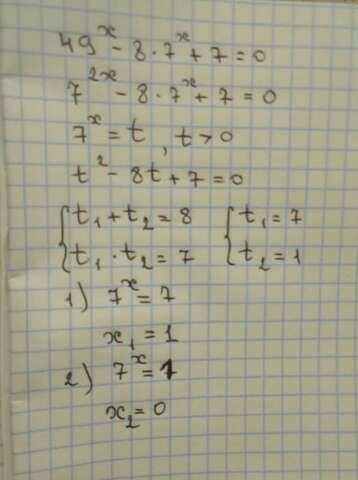 49ˣ - 8 · 7ˣ + 7 = 0
7²ˣ - 8 · 7ˣ + 7 = 0
7ˣ = t, t > 0
t² - 8t + 7 = 0
{ t₁ + t₂ = 8 { t₁ = 7
{ t₁ · t₂ = 7 { t₂ = 1
1) 7ˣ = 7
x₁ = 1
2) 7ˣ = 1
x₂ = 0